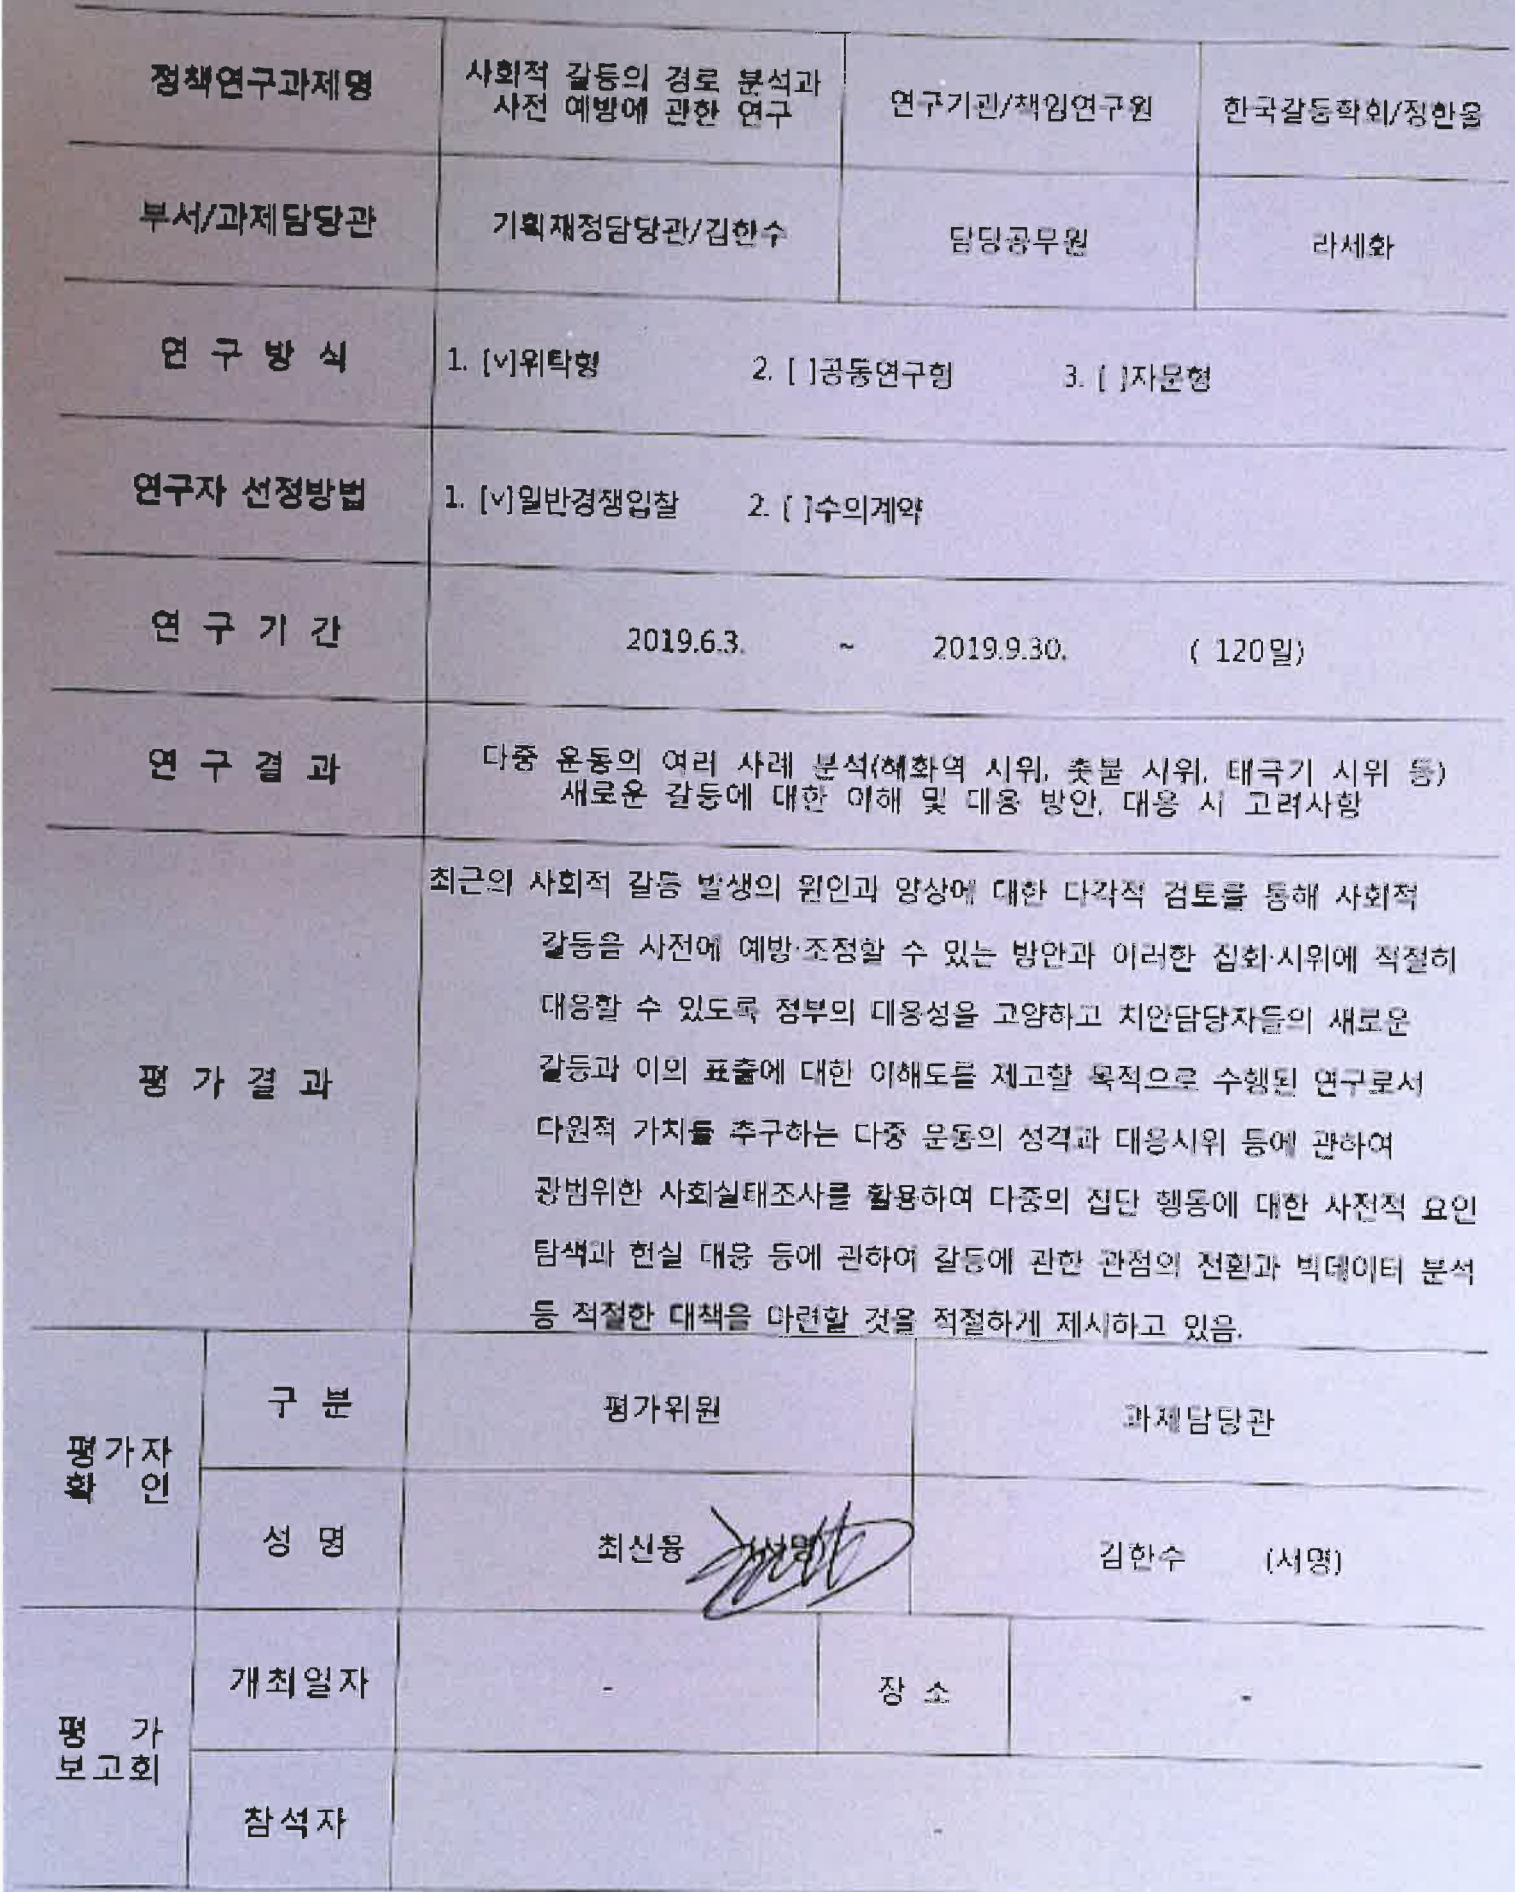 정책연구과제명
사회적 갈등의 경로 분석과
사전 예방에 관한 연구
연구기관/책임연구원
한국갈등학회/정한울
부서/과제담당관
기획재정담당관/김한수
담당공무원
라세화
연 구 방 식
1. [v]위탁형 2. [ ]공동연구형 3. [ ]자문형
연구자 선정방법
1. [v]일반경쟁입찰 2. [ ]수의계약
연 구 기 간
2019.6.3. ~ 2019.9.30. ( 120일)
연 구 결 과
다중 운동의 여러 사례 분석(혜화역 시위, 촛불 시위, 태극기 시위 등)
새로운 갈등에 대한 이해 및 대응 방안, 대응 시 고려사항
평 가 결 과
최근의 사회적 갈등 발생의 원인과 양상에 대한 다각적 검토를 통해 사회적
갈등을 사전에 예방·조정할 수 있는 방안과 이러한 집회·시위에 적절히
대응할 수 있도록 정부의 대응성을 고양하고 치안담당자들의 새로운
갈등과 이의 표출에 대한 이해도를 제고할 목적으로 수행된 연구로서
다원적 가치를 추구하는 다중 운동의 성격과 대응시위 등에 관하여
광범위한 사회실태조사를 활용하여 다중의 집단 행동에 대한 사전적 요인
탐색과 현실 대응 등에 관하여 갈등에 관한 관점의 전환과 빅데이터 분석
등 적절한 대책을 마련할 것을 적절하게 제시하고 있음.
평가자
확 인
구 분
평가위원
과제담당관
성 명
최신융
김한수 (서명)
평 가
보고회
개최일자
-
장 소
-
참석자
-